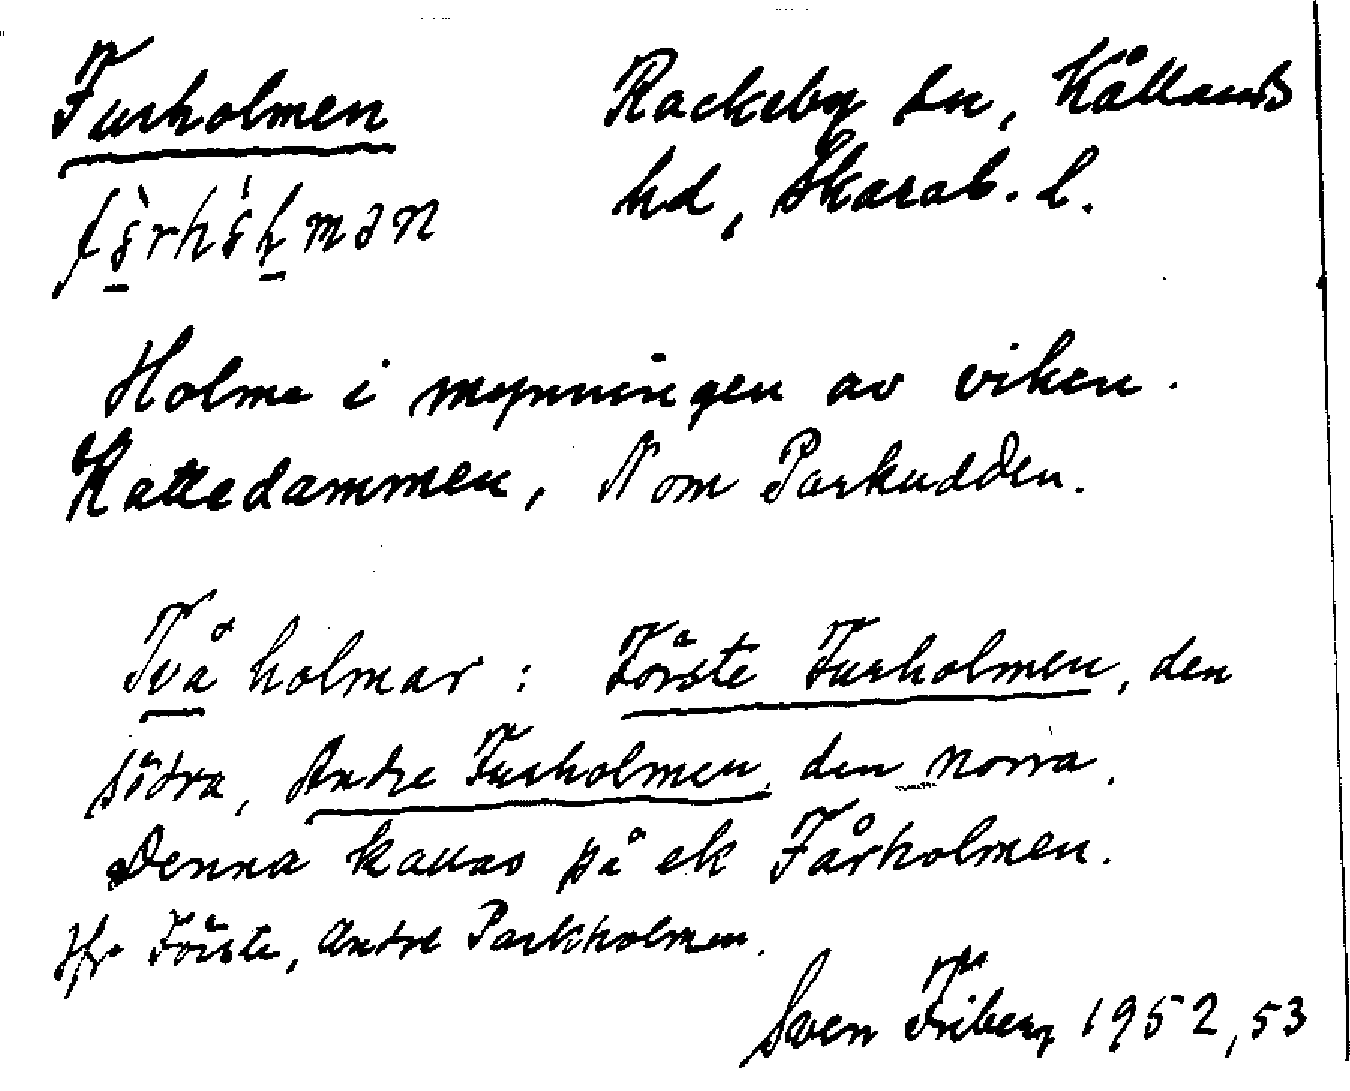 Furholmen Rackeby sn, Kållands
hd, Skarab. l.
Holme i mynningen av viken
Kattedammen, N om Parkudden.
Två holmar: Förste Furholmen, den
södra, Andre Furholmen, den norra.
Denna kallas på ek Fårholmen.
Jfr Förste, Andre Parkholmen.
Sven Friberg 1952, 53